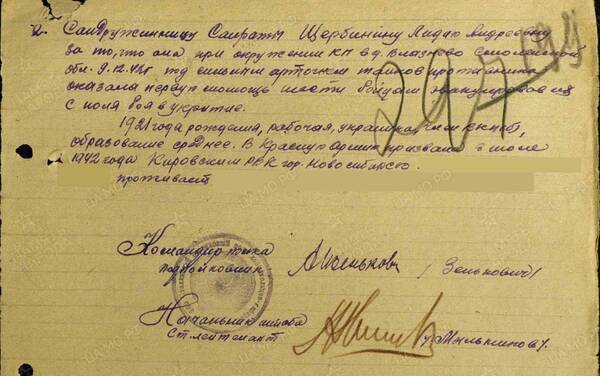 2. Сандружинницу Санроты Щербинину Лидию Андреевну
за то, что она при окружении КП в д. Влазнево Смоленской
обл. 9.12.42г под сильным артогнем танков противника
оказала первую помощь шести бойцам эвакуировав их
с поля боя в укрытие.
1921 года рождения, рабочая, украинка, член ВЛКСМ,
образование среднее. В Красную Армию призвана в июле
1942 года Кировским РВК гор. Новосибирска.
проживает
Командир полка
подполковник /Зенькович/
Начальник штаба
ст. лейтенант